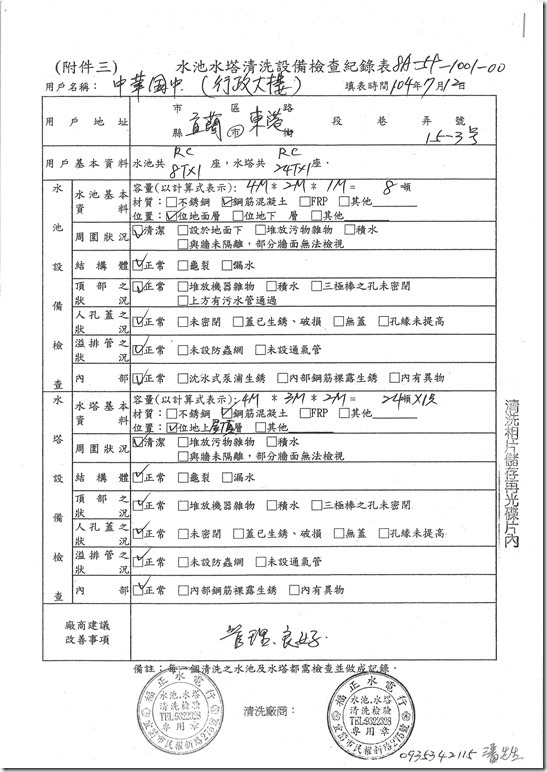 (附件三) 水池水塔清洗設備檢查紀錄表 8A-54-1001-00
用戶名稱: 中華國中 (行政大樓) 填表時間 104年7月12日
用戶地址 宜蘭 市縣 區市 東港 路街 段 巷 弄 15-3號
用戶基本資料 水池共 RC 8T×1 座,水塔共 RC 24T×1 座.
水池設備檢查
水池基本資料 容量(以計算式表示): 4M * 2M * 1M = 8 噸
材質:□不銹鋼 ☑鋼筋混凝土 □FRP □其他
位置:☑位地面層 □位地下 層 □其他
周圍狀況 ☑清潔 □設於地面下 □堆放污物雜物 □積水
□與牆未隔離,部分牆面無法檢視
結構體 ☑正常 □龜裂 □漏水
頂部之狀況 ☑正常 □堆放機器雜物 □積水 □三極棒之孔未密閉
□上方有污水管通過
人孔蓋之狀況 ☑正常 □未密閉 □蓋已生銹、破損 □無蓋 □孔緣未提高
溢排管之狀況 ☑正常 □未設防蟲網 □未設通氣管
內部 ☑正常 □沈水式泵浦生銹 □內部鋼筋裸露生銹 □內有異物
水塔設備檢查
水塔基本資料 容量(以計算式表示): 4M * 3M * 2M = 24噸×1只
材質:□不銹鋼 ☑鋼筋混凝土 □FRP □其他
位置:☑位地上屋頂層 □其他
周圍狀況 ☑清潔 □堆放污物雜物 □積水
□與牆未隔離,部分牆面無法檢視
結構體 ☑正常 □龜裂 □漏水
頂部之狀況 ☑正常 □堆放機器雜物 □積水 □三極棒之孔未密閉
人孔蓋之狀況 ☑正常 □未密閉 □蓋已生銹、破損 □無蓋 □孔緣未提高
溢排管之狀況 ☑正常 □未設防蟲網 □未設通氣管
內部 ☑正常 □內部鋼筋裸露生銹 □內有異物
清洗相片儲存再光碟片內
廠商建議改善事項 管理良好
備註:每一個清洗之水池及水塔都需檢查並做成記錄.
福正水電行
水池.水塔
清洗檢驗
TEL:9322328
專用章
宜蘭市民權新路275號
清洗廠商:
福正水電行
水池.水塔
清洗檢驗
TEL:9322328
專用章
宜蘭市民權新路275號
0935342115 潘先生